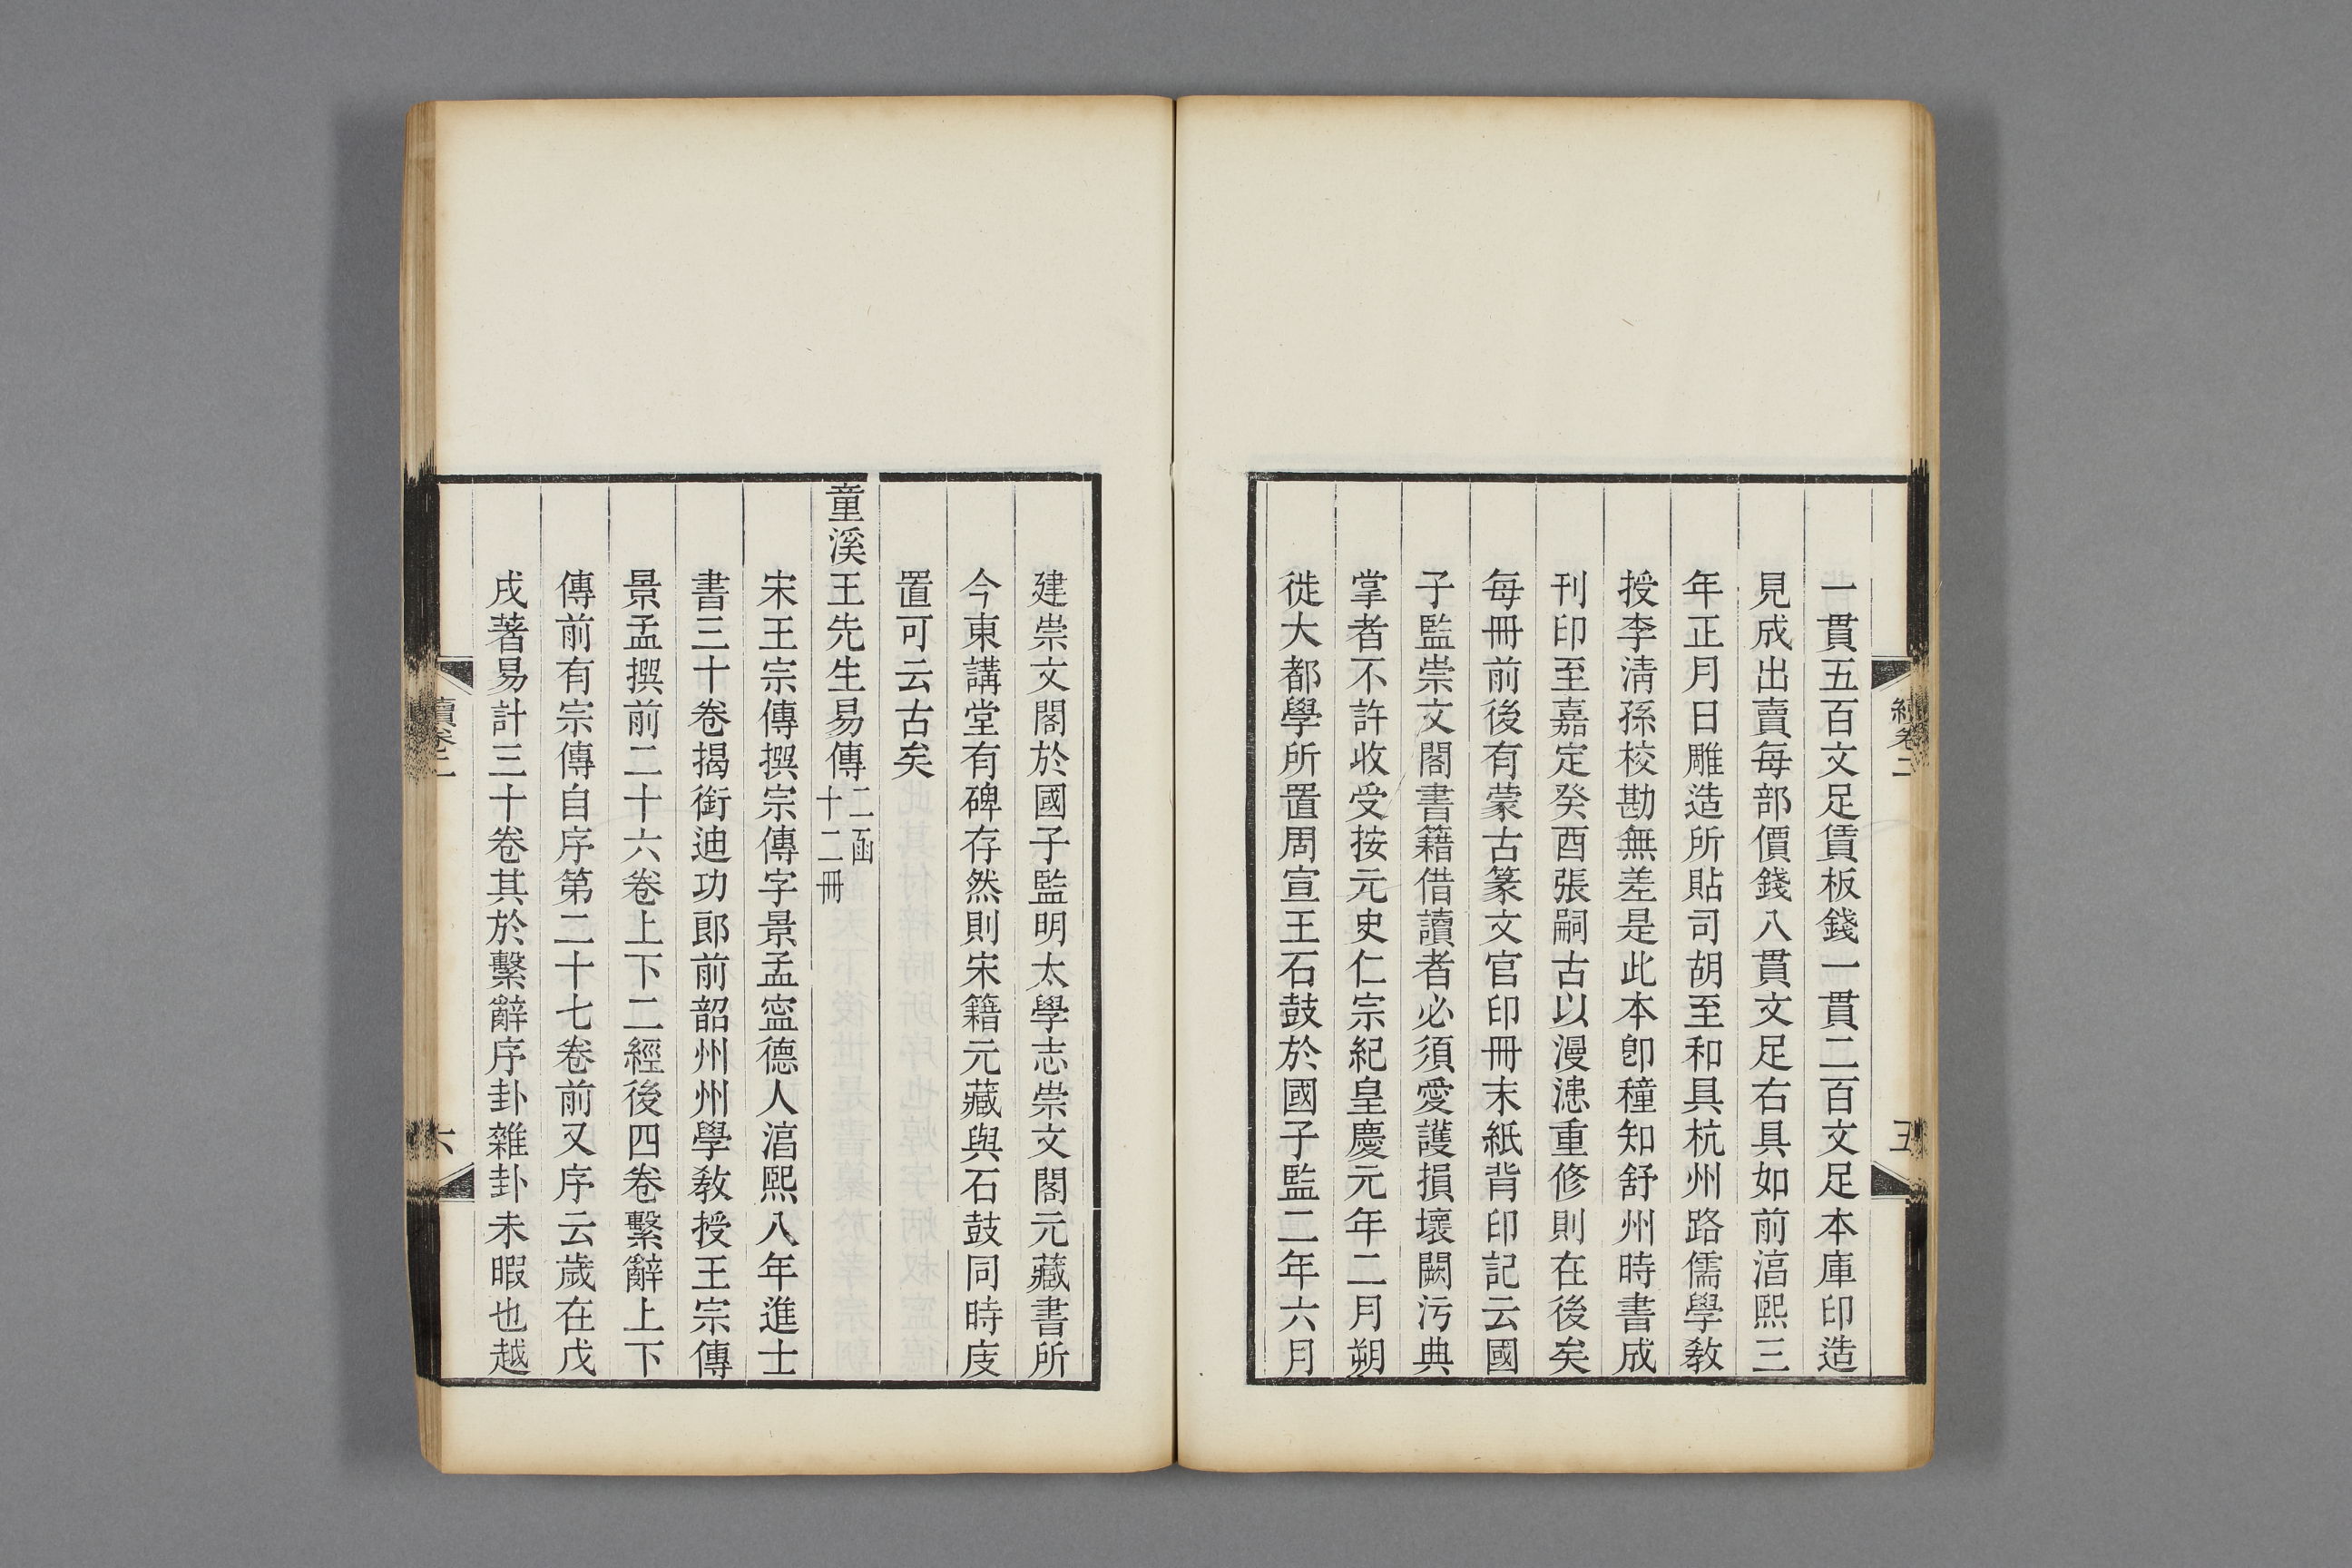 一貫五百文足賃板錢一貫二百文足本庫印造
見成出賣每部價錢八貫文足右具如前淳熙三
年正月日雕造所貼司胡至和具杭州路儒學教
授李淸孫校勘無差是此本卽穜知舒州時書成
刊印至嘉定癸酉張嗣古以漫漶重修則在後矣
每冊前後有蒙古篆文官印冊末紙背印記云國
子監崇文閣書籍借讀者必須愛護損壞闕污典
掌者不許收受按元史仁宗紀皇慶元年二月朔
徙大都學所置周宣王石鼓於國子監二年六月
續卷二
五
建崇文閣於國子監明太學志崇文閣元藏書所
今東講堂有碑存然則宋籍元藏與石鼓同時庋
置可云古矣
童溪王先生易傳二函十二冊
宋王宗傳撰宗傳字景孟寍德人淳熙八年進士
書三十卷揭銜迪功郎前韶州州學教授王宗傳
景孟撰前二十六卷上下二經後四卷繫辭上下
傳前有宗傳自序第二十七卷前又序云歲在戊
戌著易計三十卷其於繫辭序卦雜卦未暇也越
續卷二
六